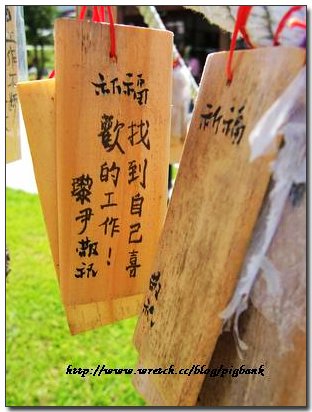 祈福
找到自己喜
歡的工作！
尹
祈福
http://www.wretch.cc/blog/pigbank